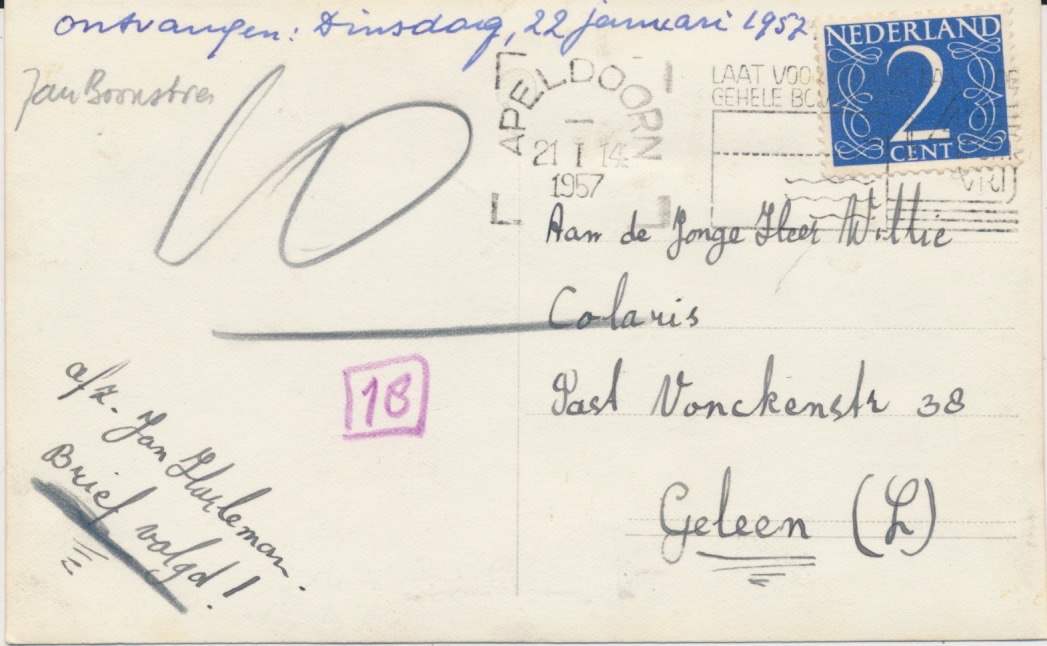 ontvangen: Dinsdag, 22 januari 1957.
Jan Boonstra
10
NEDERLAND
2
CENT
APELDOORN
21 I 14
1957
LAAT VOOR
GEHELE
Aan de Jonge Heer Willie
Colaris
Past Vonckenstr 38
Geleen (L)
18
afz. Jan Harleman.
Brief volgd!